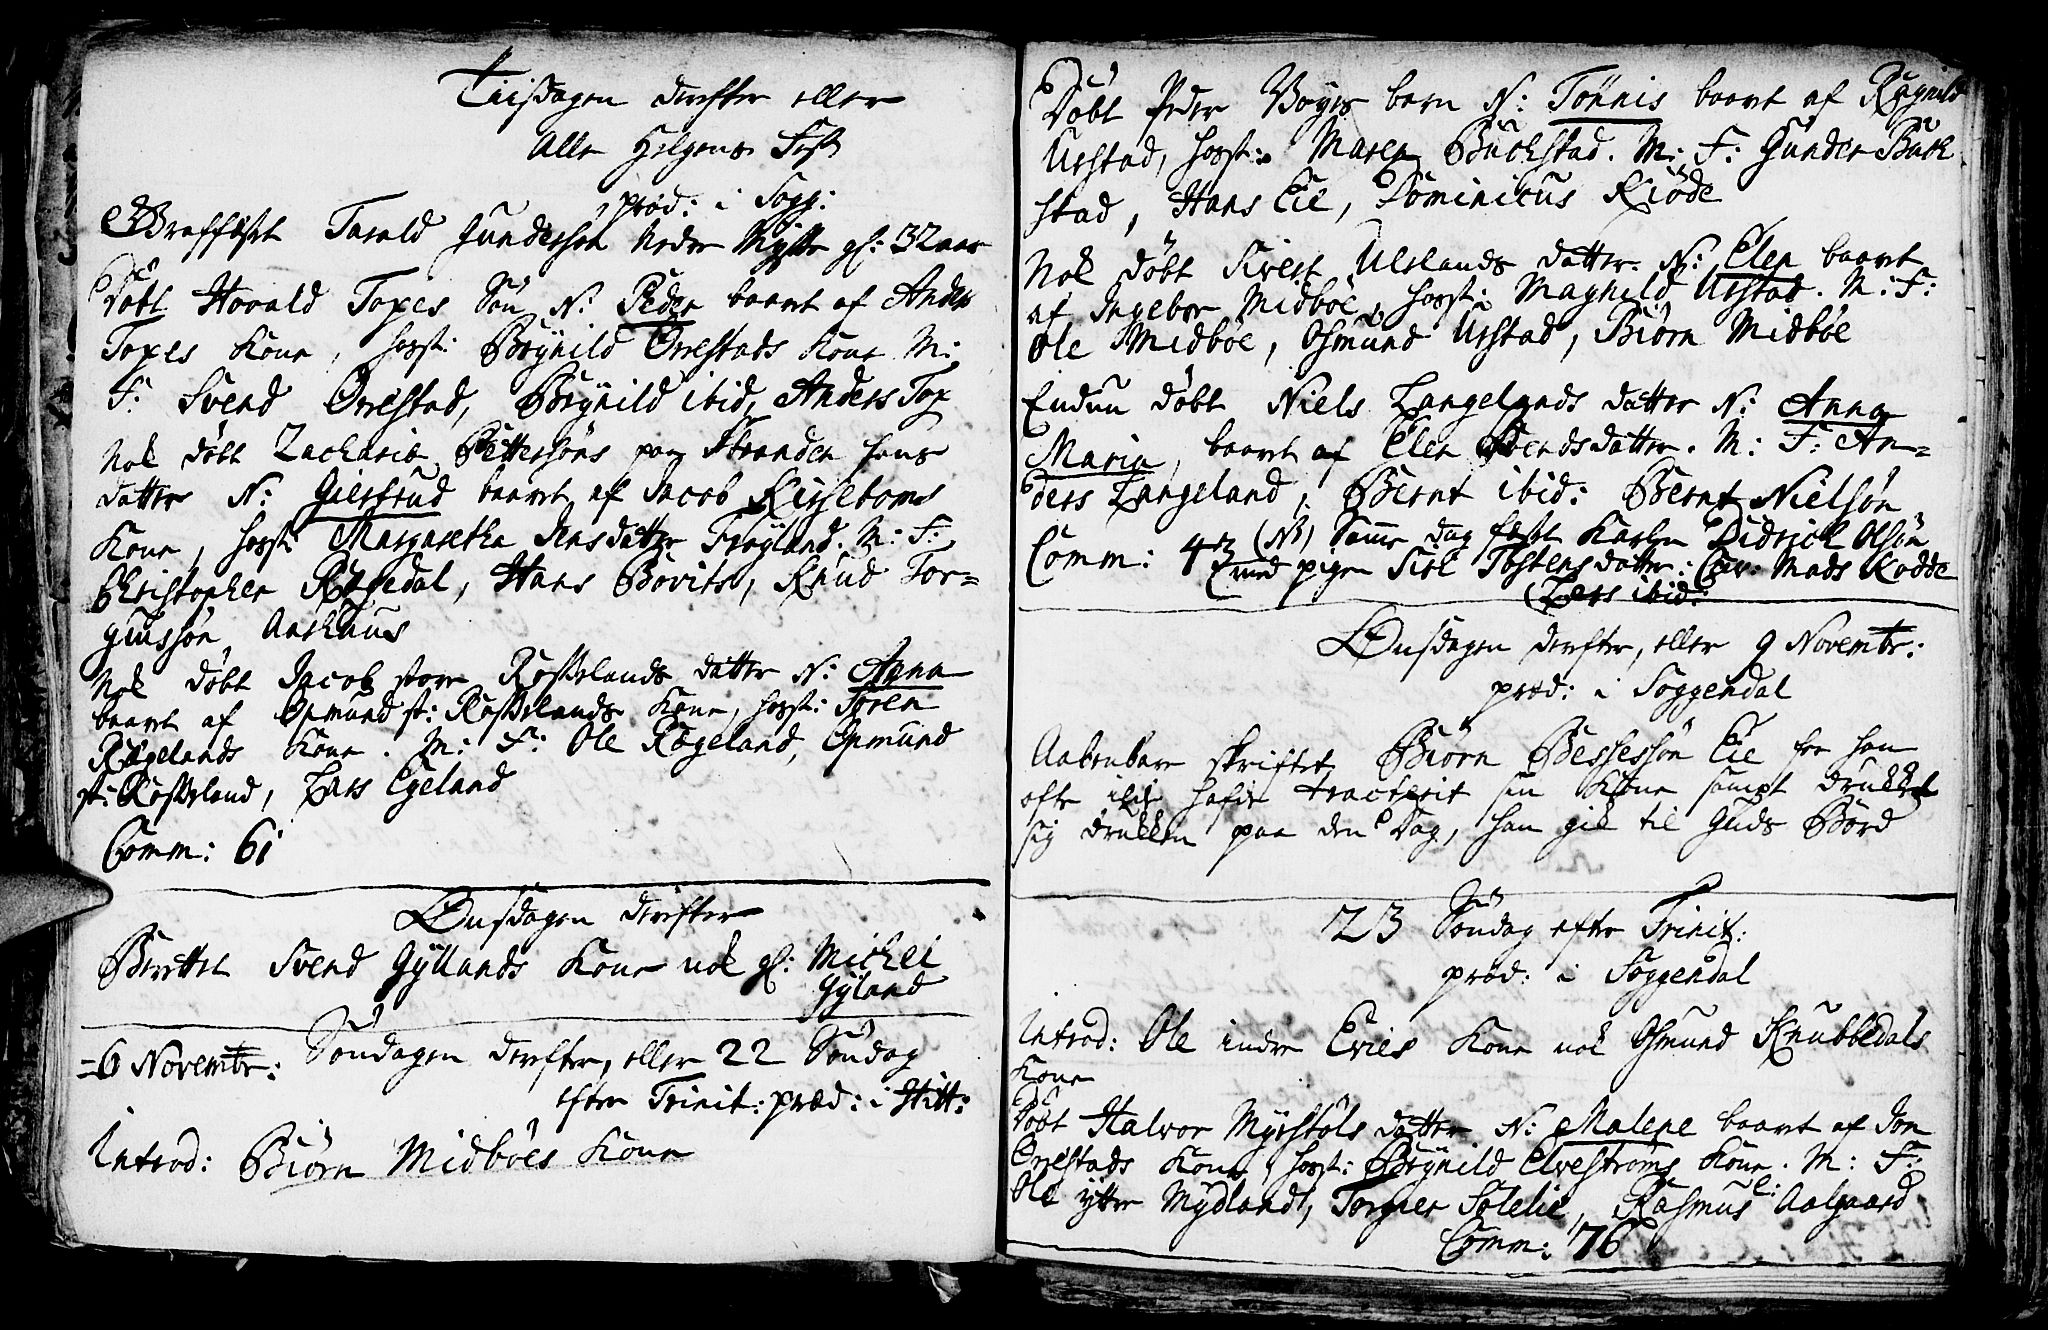 Tiisdagen derefter eller
Alle Helgens Fest
præd: i Sogg:
Graffæstet Tarald Gundersøn Nedre Mysse gl: 32 aar
Døbt Hovald Topes Søn N: Peder baaret af Anders
Topes Kone, hosst: Brÿnild Ørrestads Kone M:
F: Svend Ørrestad, Brÿnild ibid, Anders Top
Nok døbt Zacharie Pettersøns paa Stranden hans
datter N: Giertrud baaret af Jacob Kirseboms
Kone, hosst: Margaretha Jensdatter Frøyland. M: F:
Christopher Rægedal, Hans Bovits, Knud Tor=
giussøn Aarhuus
Nok døbt Jacob store Rosselands datter N: Anna
baaret af Omund st: Rosselands Kone, hosst: Søren
Rægelands Kone. M: F: Ole Rægeland, Omund
st: Rosseland, Lars Egeland
Comm: 61
Onsdagen derefter
Berettet Svend Gÿllands Kone nok gl: Michel
Gÿland
=6 Novembr: Søndagen derefter, eller 22 Søndag
efter Trinit: præd: i Hitt:
Introd: Biørn Midbøes Kone
Døbt Peder Boyes barn N: Tønnis baaret af Ragnild
Urstad, hosst: Maren Buchstad. M: F: Gunder Buch
stad, Hans Eie, Dominicus Kiøde
Nok døbt Sivert Ulslands datter N: Elen baaret
af Ingebor Midbøe, hosst: Magnild Urstad. M: F:
Ole Midbøe, Osmund Urstad, Biørn Midbøe
Endnu døbt Niels Langelands datter N: Anna
Maria, baaret af Elen Berndsdatter. M: F: An=
ders Langeland, Bernt ibid: Bernt Nielsøn
Comm: 43 (NB) Samme dag fæst Karlen Didrick Olsøn
med pigen Siri Tostensdatter: Cav: Mads Rodde
Lars ibid:
Onsdagen derefter, eller 9 Novembr:
præd: i Soggendal
Aabenbare skriftet Biørn Bessessøn Eie for han
ofte ilde hafde tracterit sin Kone sampt drukket
sig drukken paa den Dag, han gik til Guds Bord
23 Søndag efter Trinit:
præd: i Soggendal
Introd: Ole indre Evies Kone nok Osmund Knubbedals
Kone
Døbt Halvor Myrstøls datter N: Malene baaret af Jon
Ørrestads Kone, hosst: Brÿnild Elvestrøms Kone. M: F:
Ole ÿtre Mÿdlandt, Torger Solelie, Rasmus Aalgaard
Comm: 76